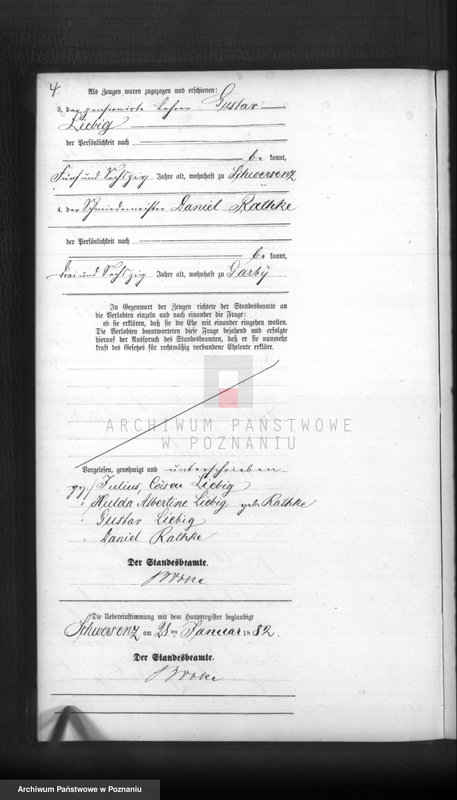 4.
Als Zeugen waren zugezogen und erschienen:
3. der pensionirte Lehrer Gustav
Liebig
der Persönlichkeit nach
be kannt,
Fünf und Sechszig Jahre alt, wohnhaft zu Schwersenz
4. der Schmiedemeister Daniel Rathke
der Persönlichkeit nach
be kannt,
Drei und Sechszig Jahre alt, wohnhaft zu
In Gegenwart der Zeugen richtete der Standesbeamte an
die Verlobten einzeln und nach einander die Frage:
ob sie erklären, daß sie die Ehe mit einander eingehen wollen.
Die Verlobten beantworteten diese Frage bejahend und erfolgte
hierauf der Ausspruch des Standesbeamten, daß er sie nunmehr
kraft des Gesetzes für rechtmäßig verbundene Eheleute erkläre.
ARCHIWUM PAŃSTWOWE
W POZNANIU
Vorgelesen, genehmigt und unterschrieben
gez. Julius, Cäsar Liebig
" Hulda Albertine Liebig geb. Rathke
" Gustav Liebig
" Daniel Rathke
Der Standesbeamte.
Die Uebereinstimmung mit dem Hauptregister beglaubigt
Schwersenz am 28 ten Januar 1882.
Der Standesbeamte.
Archiwum Państwowe w Poznaniu